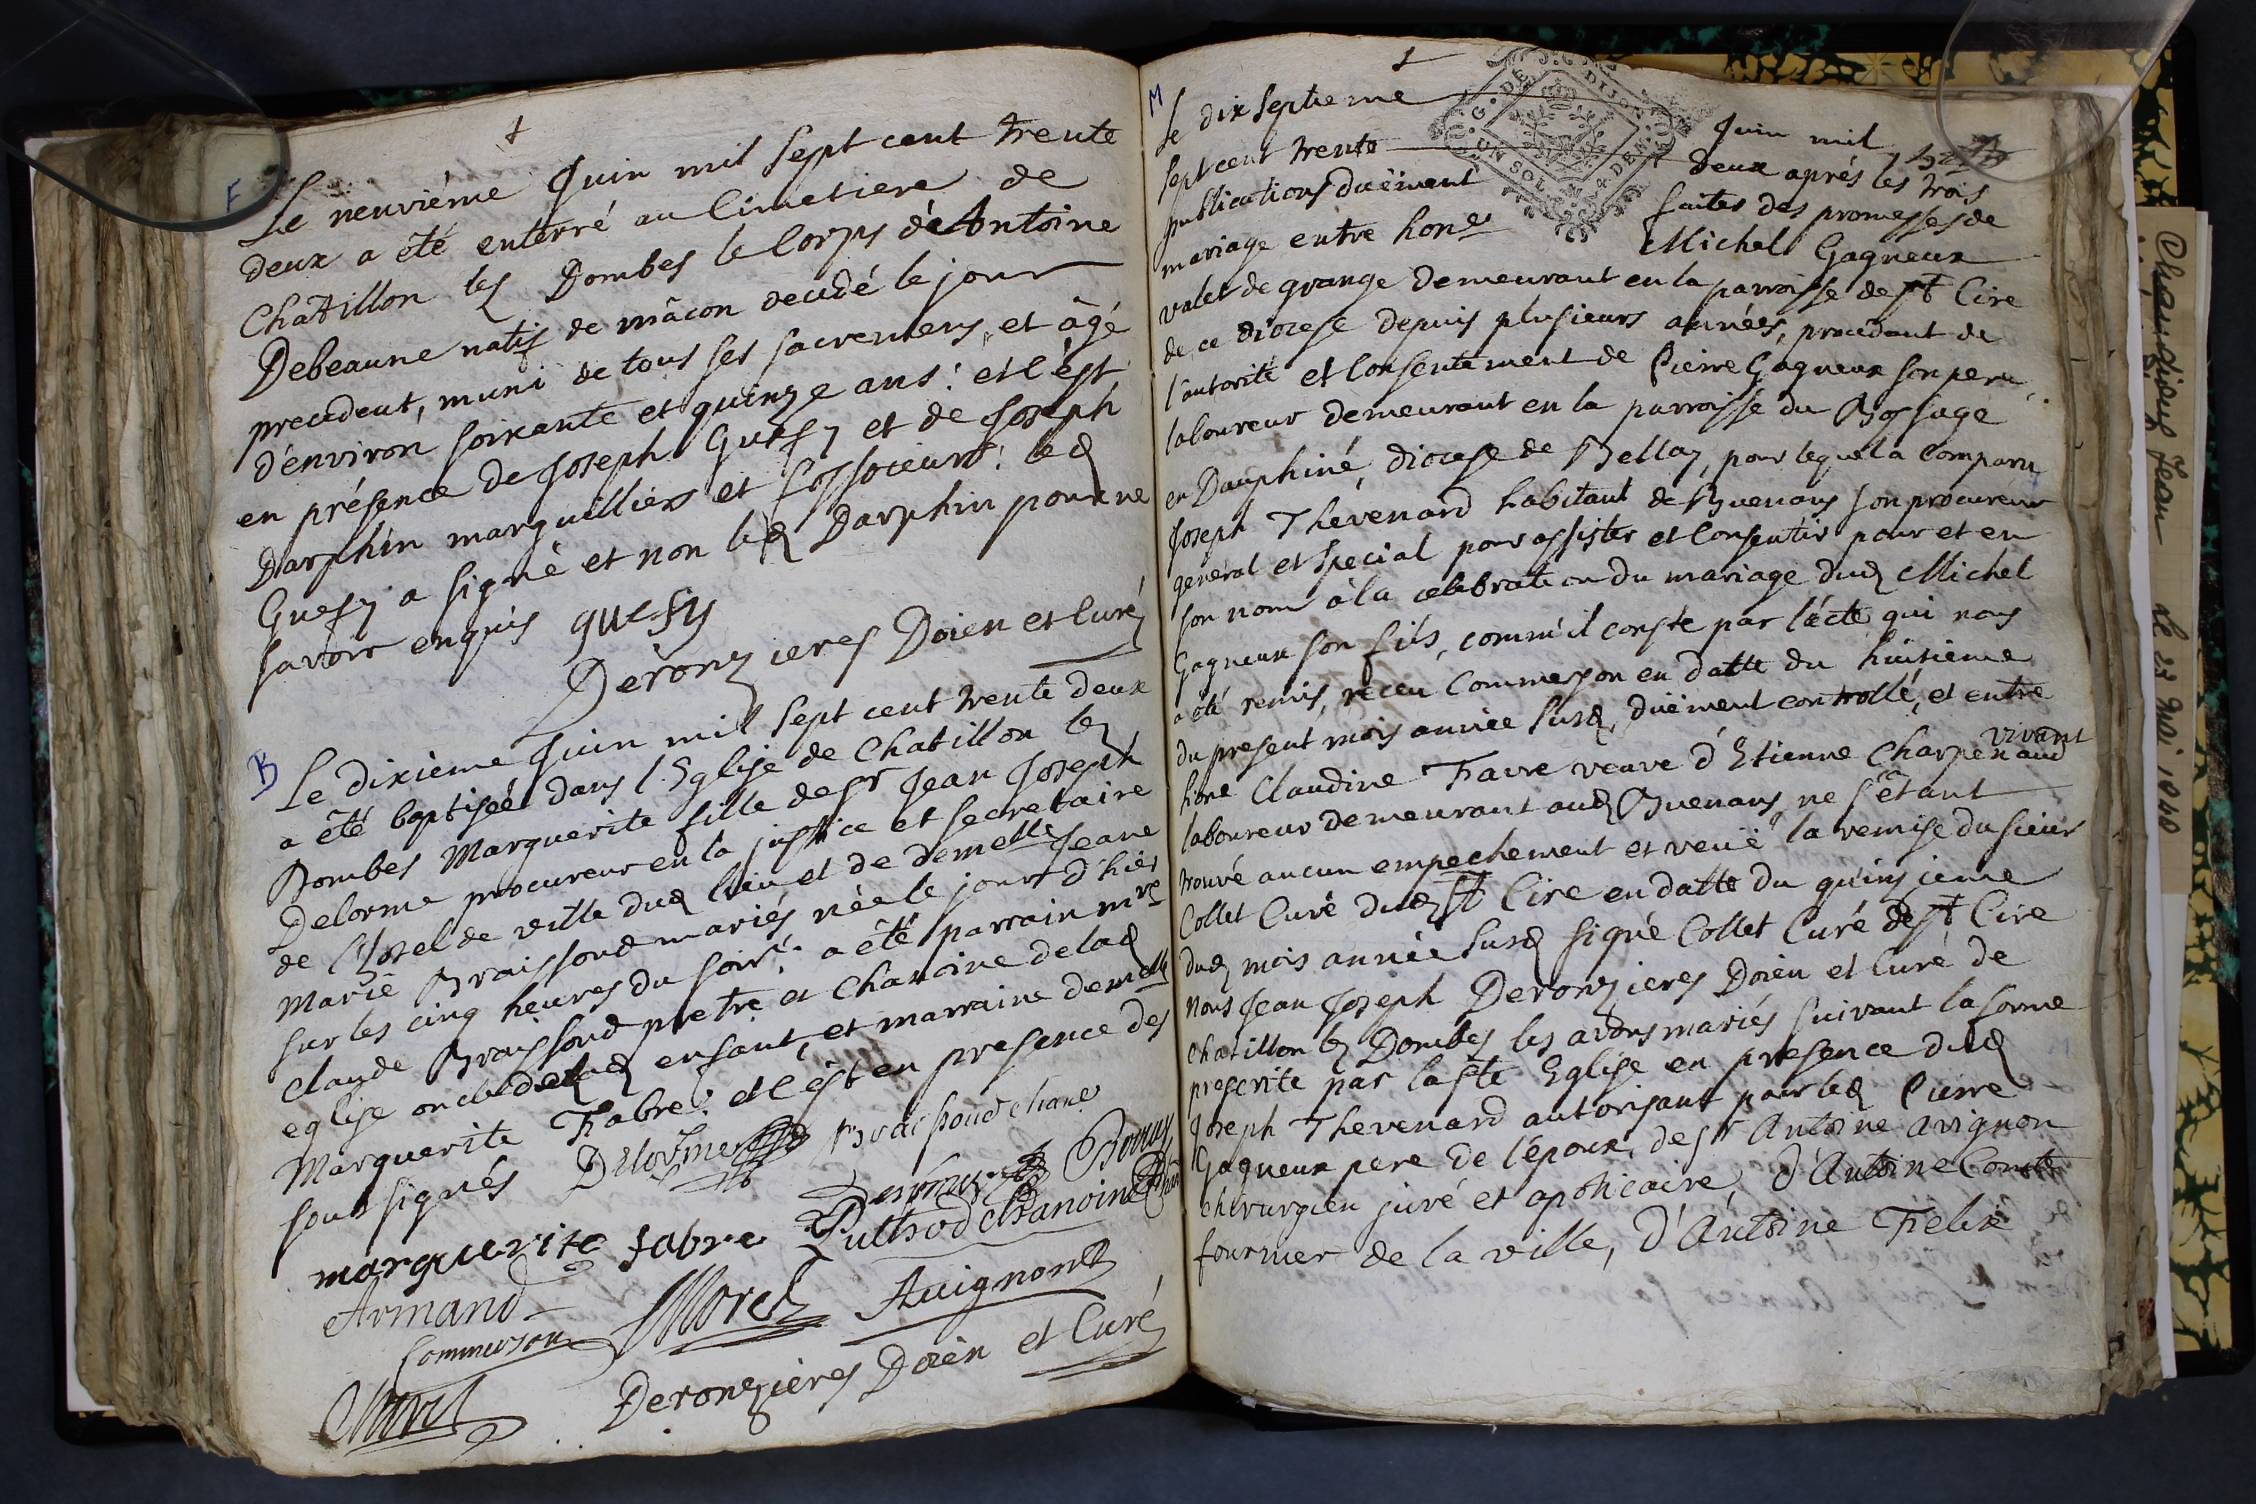 †
F
Le neuviéme Juin mil Sept cent trente
deux a êté enterré au Cimetiere de
Chatillon les Dombes le Corps de Antoine
Debeaune natif de mâcon decedé le jour
precedent, muni de tous ses sacremens, et âgé
d'environ soixante et quinze ans : et c'est
en présence de Joseph Guesy et de Joseph
Darphin marguilliers et fossoieurs : led
Guesy a signé et non led Darphin pour ne
savoir enquis guesy
Deronzieres Doien et Curé
B
Le dixieme Juin mil Sept cent trente deux
a êté baptisée dans l'Eglise de Chatillon les
Dombes Marguerite fille de sr Jean Joseph
Delorme procureur en la justice et secretaire
de l'hotel de ville dud lieu et de demelle Jeane
Marie Braissoud mariés née le jour d'hier
sur les cinq heures du soir : a êté parrain mre
Claude Braissoud pretre et Chanoine de lad
eglise oncle dud enfant, et marraine demelle
Marguerite Fabre : et c'est en presence des
sous signés Delorme Braissoud chane
marguerite fabre Puthod chanoine
Armand Morel Avignon
Commerson
Deronzieres Doien et Curé
M
†
G. DE DIJON
UN SOL 4 DEN.
Le dix Septieme Juin mil
Sept cent trente deux aprés les trois
publications duëment faites des promesses de
mariage entre hone Michel Gagneux
valet de grange demeurant en la parroisse de st Cire
de ce diocese depuis plusieurs années, procedant de
l'autorité et Consentement de Pierre Gagneux son pere
laboureur demeurant en la parroisse du Bossage
en Dauphiné, diocese de Bellay, pour lequel a Comparu
Joseph Thevenard habitant de Buenans son procureur
general et special pour assister et Consentir pour et en
son nom à la celebration du mariage dud Michel
Gagneux son fils, comm'il conste par l'acte qui nous
a êté remis, receu Commerson en datte du huitieme
du present mois année susd, duëment controllé, et entre
hone Claudine Favre veuve d'Etienne Charpenaud vivant
laboureur demeurant aud Buenans, ne s'êtant
trouvé aucun empechement et veuë la remise du sieur
Collet Curé dud st Cire en datte du quinzieme
dud mois année susd signé Collet Curé de st Cire
nous Jean Joseph Deronzieres Doien et Curé de
Chatillon les Dombes les avons mariés suivant la forme
prescrite par la ste Eglise en presence dud
Joseph Thevenard autorisant pour led Pierre
Gagneux pere de l'époux, de sr Antoine Avignon
chirurgien juré et apoticaire, d'Antoine Comte
fournier de la ville, d'Antoine Felix
Jean Le 23 Mai 1040